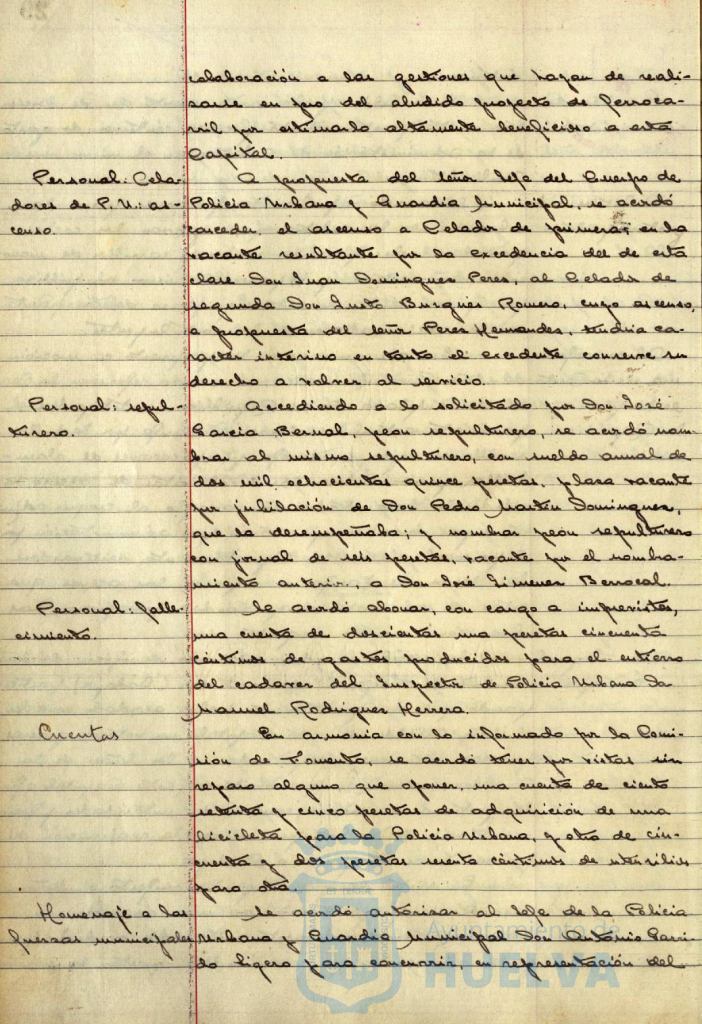 colaboración a las gestiones que hayan de reali-
zarse en pro del aludido proyecto de ferroca-
rril por estimarlo altamente beneficioso a esta
Capital.
Personal: Cela-
dores de P. U.: as-
censo.
A propuesta del señor Jefe del Cuerpo de
Policía Urbana y Guardia Municipal, se acordó
conceder el ascenso a Celador de primera, en la
vacante resultante por la excedencia del de esta
clase Don Juan Dominguez Perez, al Celador de
segunda Don Justo Burgués Romero, cuyo ascenso,
a propuesta del señor Perez Hernandez, tendria ca-
racter interino en tanto el excedente conserve su
derecho a volver al servicio.
Personal: sepul-
turero.
Accediendo a lo solicitado por Don José
Garcia Bernal, peon sepulturero, se acordó nom-
brar al mismo sepulturero, con sueldo annal de
dos mil ochocientas quince pesetas, plaza vacante
por jubilación de Don Pedro Martin Dominguez,
que la desempeñaba; y nombrar peón sepulturero
con jornal de seis pesetas, vacante por el nombra-
miento anterior, a Don José Jimenez Berrocal.
Personal: falle-
cimiento.
Se acordó abonar, con cargo a imprevistos,
una cuenta de doscientas una pesetas cincuenta
céntimos de gastos producidos para el entierro
del cadaver del Inspector de Policía Urbana Dn
Manuel Rodriguez Herrera.
Cuentas
En armonia con lo informado por la Comi-
sión de Fomento, se acordó tener por vistas sin
reparo alguno que oponer, una cuenta de ciento
setenta y cinco pesetas de adquisición de una
bicicleta para la Policía Urbana, y otra de cin-
cuenta y dos pesetas sesenta céntimos de utensilios
para otra.
Homenaje a las
fuerzas municipales
Se acordó autorizar al Jefe de la Policía
Urbana y Guardia Municipal Don Antonio Garri-
do Ligero para concurrir, en representación del
Ayuntamiento de
HUELVA